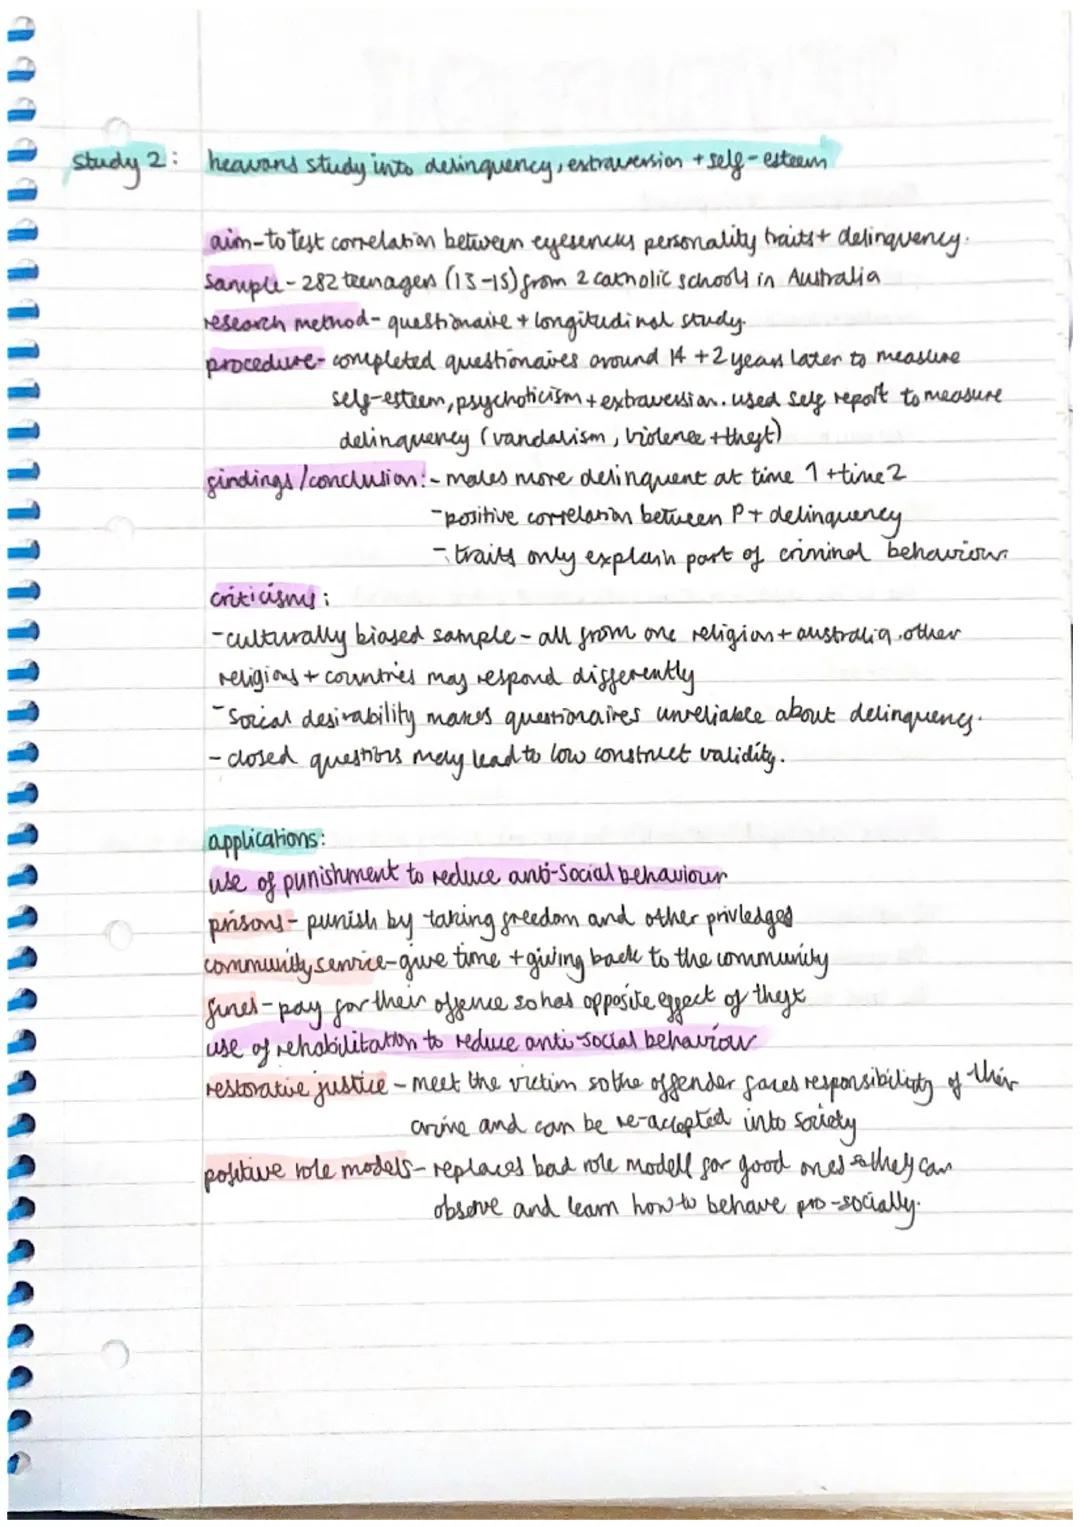 study 2: heavans study into delinquency, extraversion + self-esteem
aim-to test correlation between eyesencks personality traits + delinquency.
Sample - 282 teenagers (13-15) from 2 catholic schools in Australia
research method- questionaire + longitudinal study.
procedure- completed questionaires around 14 + 2 years later to measure
self-esteem, psychoticism + extraversion. used self report to measure
delinquency (vandalism, violence + theft)
findings/conclusion:- males more delinquent at time 1 + time 2
-positive correlation between P + delinquency
- traits only explain part of criminal behaviour.
criticisms:
-culturally biased sample - all from one religion + australia. other
religions + countries may respond differently
-Social desirability makes questionaires unreliable about delinquency.
- closed questions may lead to low construct validity.
applications:
use of punishment to reduce anti-social behaviour
prisons - punish by taking freedom and other privledges
community service-give time + giving back to the community
fines-pay for their offence so has opposite effect of theft
use of rehabilitation to reduce anti-social behaviour
restorative justice - meet the victim so the offender faces responsibility of their
crime and can be re-accepted into society
positive role models- replaces bad role modell for good ones & they can
observe and learn how to behave pro-socially.